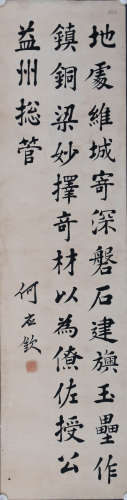 地處維城寄深磐石建旟玉壘作
鎮銅梁妙擇奇材以為僚佐授公
益州総管
何應欽